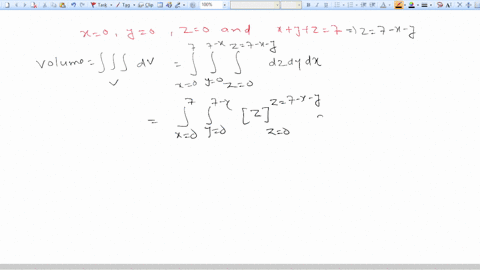 x=0, y=0, z=0 and x+y+z=7 ⇒ z=7-x-y
Volume = ∫∫∫_V dV = ∫_{x=0}^{7} ∫_{y=0}^{7-x} ∫_{z=0}^{z=7-x-y} dz dy dx
= ∫_{x=0}^{7} ∫_{y=0}^{7-x} [z]_{z=0}^{z=7-x-y}